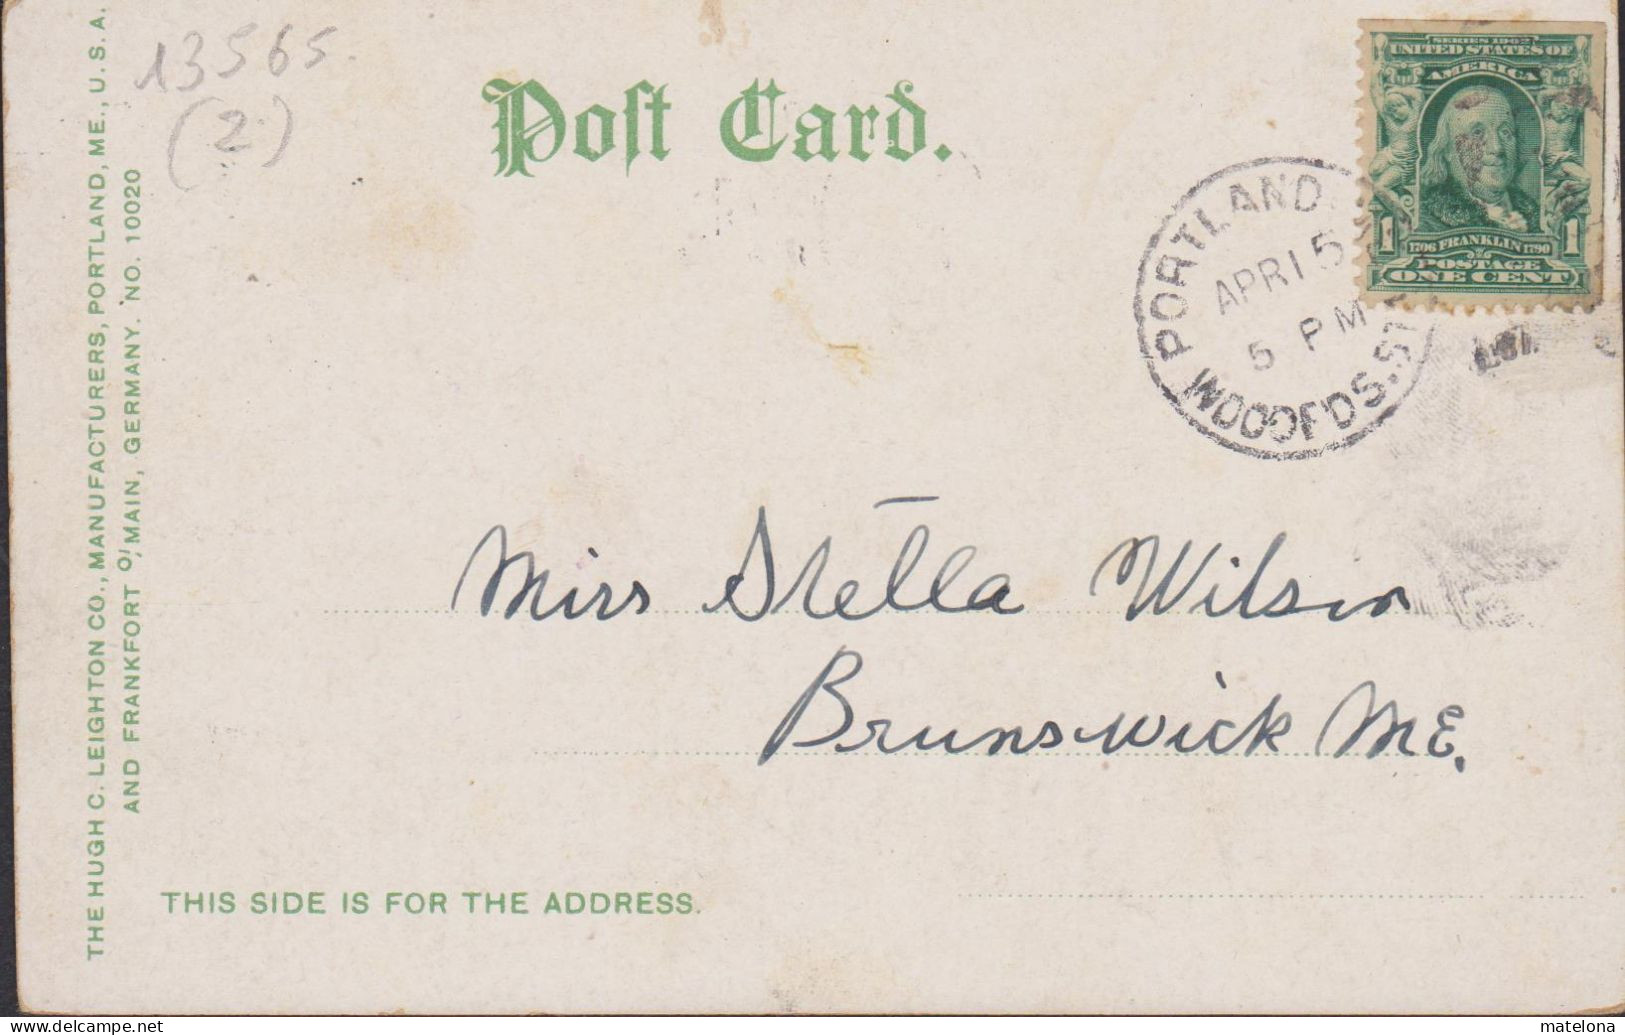 13565.
(2)
Post Card.
SERIES 1902
UNITED STATES OF
AMERICA
1 1
1706 FRANKLIN 1790
POSTAGE
ONE CENT
PORTLAND
APR 15
5 PM
WOODFDS. ST
Miss Stella Wilson
Brunswick ME.
THIS SIDE IS FOR THE ADDRESS.
THE HUGH C. LEIGHTON CO., MANUFACTURERS, PORTLAND, ME., U.S.A.
AND FRANKFORT O/MAIN, GERMANY. NO. 10020
www.delcampe.net
matelona